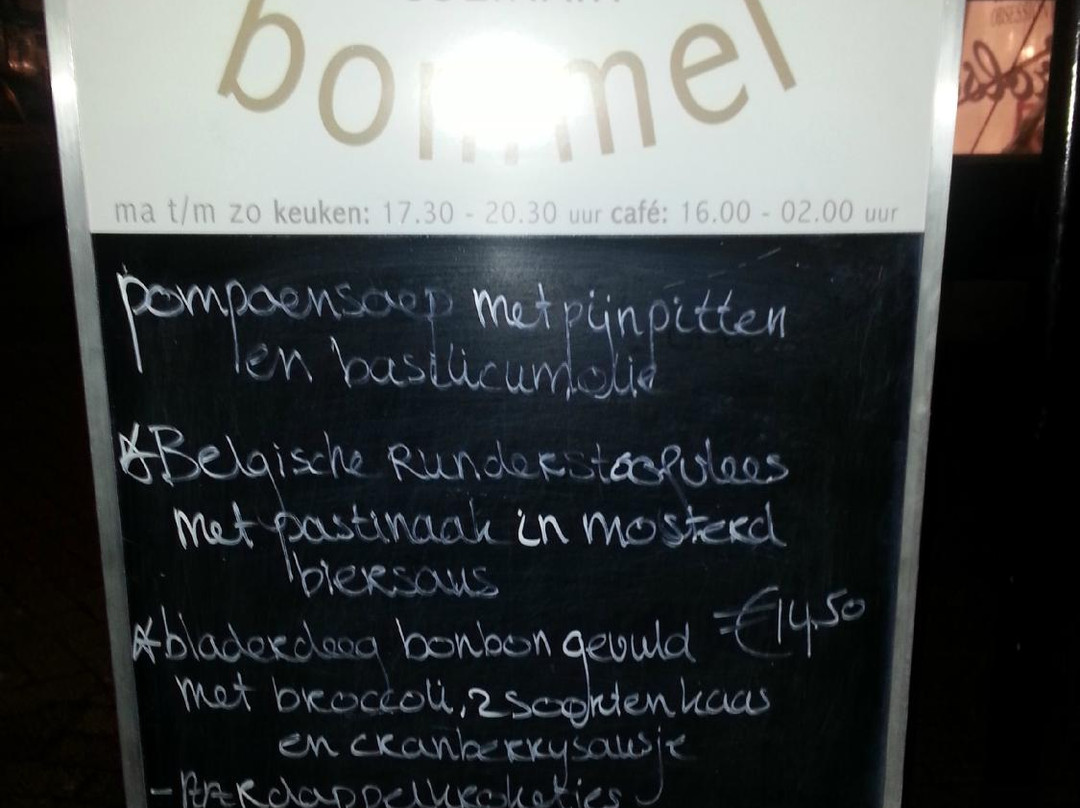 bommel
ma t/m zo keuken: 17.30 - 20.30 uur café: 16.00 - 02.00 uur
pompoensoep met pijnpitten
en basilicumolie
*Belgische Runderstoofvlees
met pastinaak in mosterd
biersaus
€14,50
*bladerdeeg bonbon gevuld
met broccoli, 2 soorten kaas
en cranberrysausje
- Aardappelkroketjes